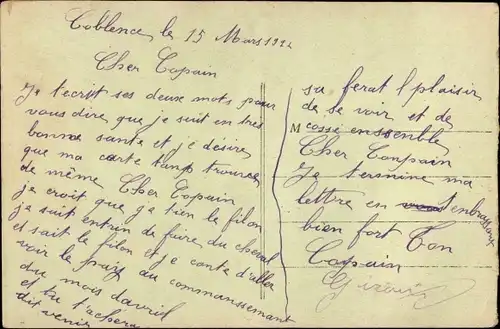 Coblence, le 15 Mars 192
Cher Copain
Je t'ecrit ses deux mots pour
vous dire que je suit en tres
bonne sante et je désire
que ma carte
de même Cher Copain
je croit que je tien le filon
je suit entrin de faire du cheval
et sait le filon et je conte d'aller
voir le païs au commanssement
du mois davril
et tu
venir
sa ferat l plaisir
de se voir et de
M
cossé enssenble
Cher Conpain
Je termine ma
lettre en t'enbrassant
bien fort Ton
Copain